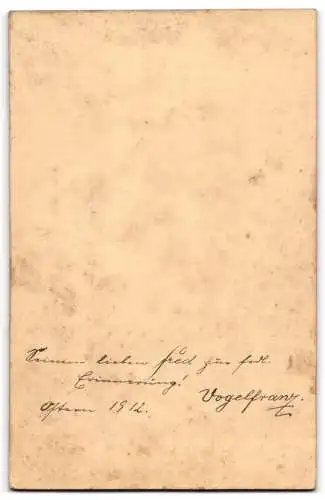 Seinem lieben Fred zur frdl.
Erinnerung!
Ostern 1912.
Vogelfranz.